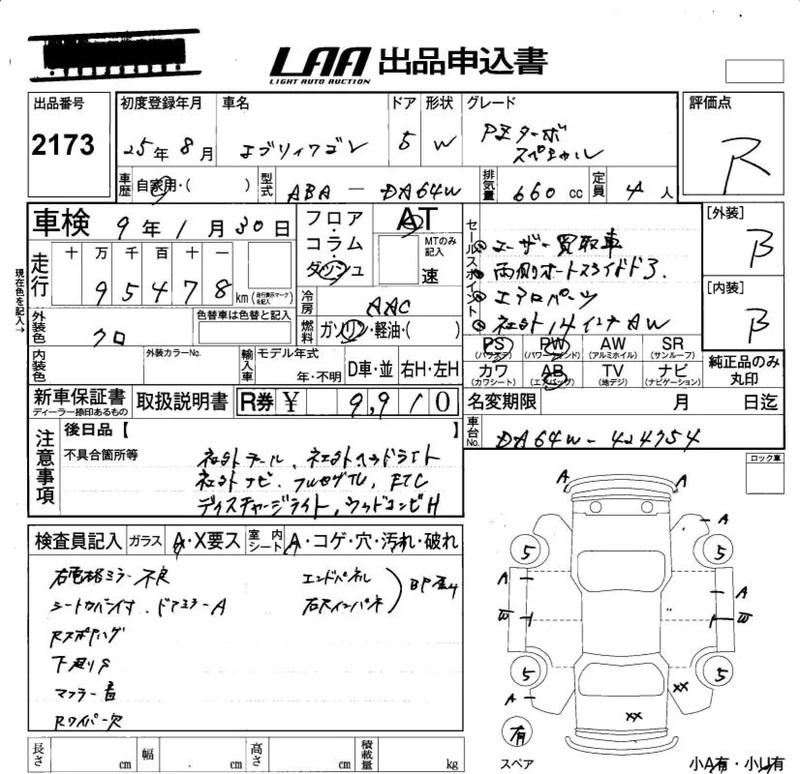 LAA 出品申込書
LIGHT AUTO AUCTION
出品番号 初度登録年月 車名 ドア 形状 グレード 評価点
2173 25年 8月 エブリィワゴン 5 W PZターボ スペシャル R
車歴 自家用・( ) 型式 ABA-DA64W 排気量 660cc 定員 4人
車検 9年1月30日 フロア・コラム・ダッシュ AT MTのみ記入 速
セールスポイント
ユーザー買取車
両側オートスライドドア
エアロパーツ
社外14インチAW
[外装] B
[内装] B
現在色を記入→
走行 十 万 千 百 十 一
95478 km (走行表示マークを記入)
冷房 AAC
燃料 ガソリン・軽油・( )
外装色 クロ 色替車は色替と記入
内装色 外装カラーNo. 輸入車 モデル年式 年・不明 D車・並 右H・左H
PS (パワステ) PW (パワーウィンド) AW (アルミホイル) SR (サンルーフ)
カワ (カワシート) AB (エアバッグ) TV (地デジ) ナビ (ナビゲーション)
純正品のみ丸印
新車保証書 ディーラー捺印あるもの 取扱説明書 R券 ¥ 9,910
名変期限 月 日迄
車台No. DA64W-424754
注意事項 後日品【 】
不具合箇所等
社外テール、社外ヘッドライト
社外ナビ、フルセグTV、ETC
ディスチャージライト、ウッドコンビH
ロック車
検査員記入 ガラス A・X要ス 室内シート A・コゲ・穴・汚れ・破れ
右電格ミラー不良 エンドパネル
シートカバー付 ドアミラーA
下廻りサ
マフラー音
Rワイパー欠
A A
A
5 5
A A
W W
5 5
A
XX
XX
有
スペア
小A有・小U有
長さ cm 幅 cm 高さ cm 積載量 kg